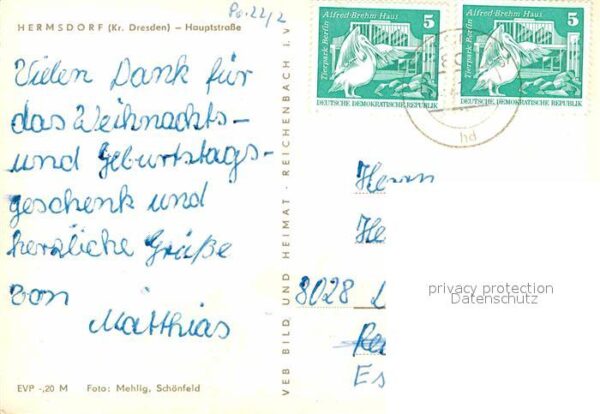 HERMSDORF (Kr. Dresden) – Hauptstraße
Vielen Dank für
das Weihnachts-
und Geburtstags-
geschenk und
herzliche Grüße
von
Matthias
EVP -,20 M Foto: Mehlig, Schönfeld
VEB BILD UND HEIMAT · REICHENBACH I. V
Alfred-Brehm-Haus 5
Tierpark Berlin
DEUTSCHE DEMOKRATISCHE REPUBLIK
Alfred-Brehm-Haus 5
Tierpark Berlin
DEUTSCHE DEMOKRATISCHE REPUBLIK
Herrn
He
8028
Es
privacy protection
Datenschutz